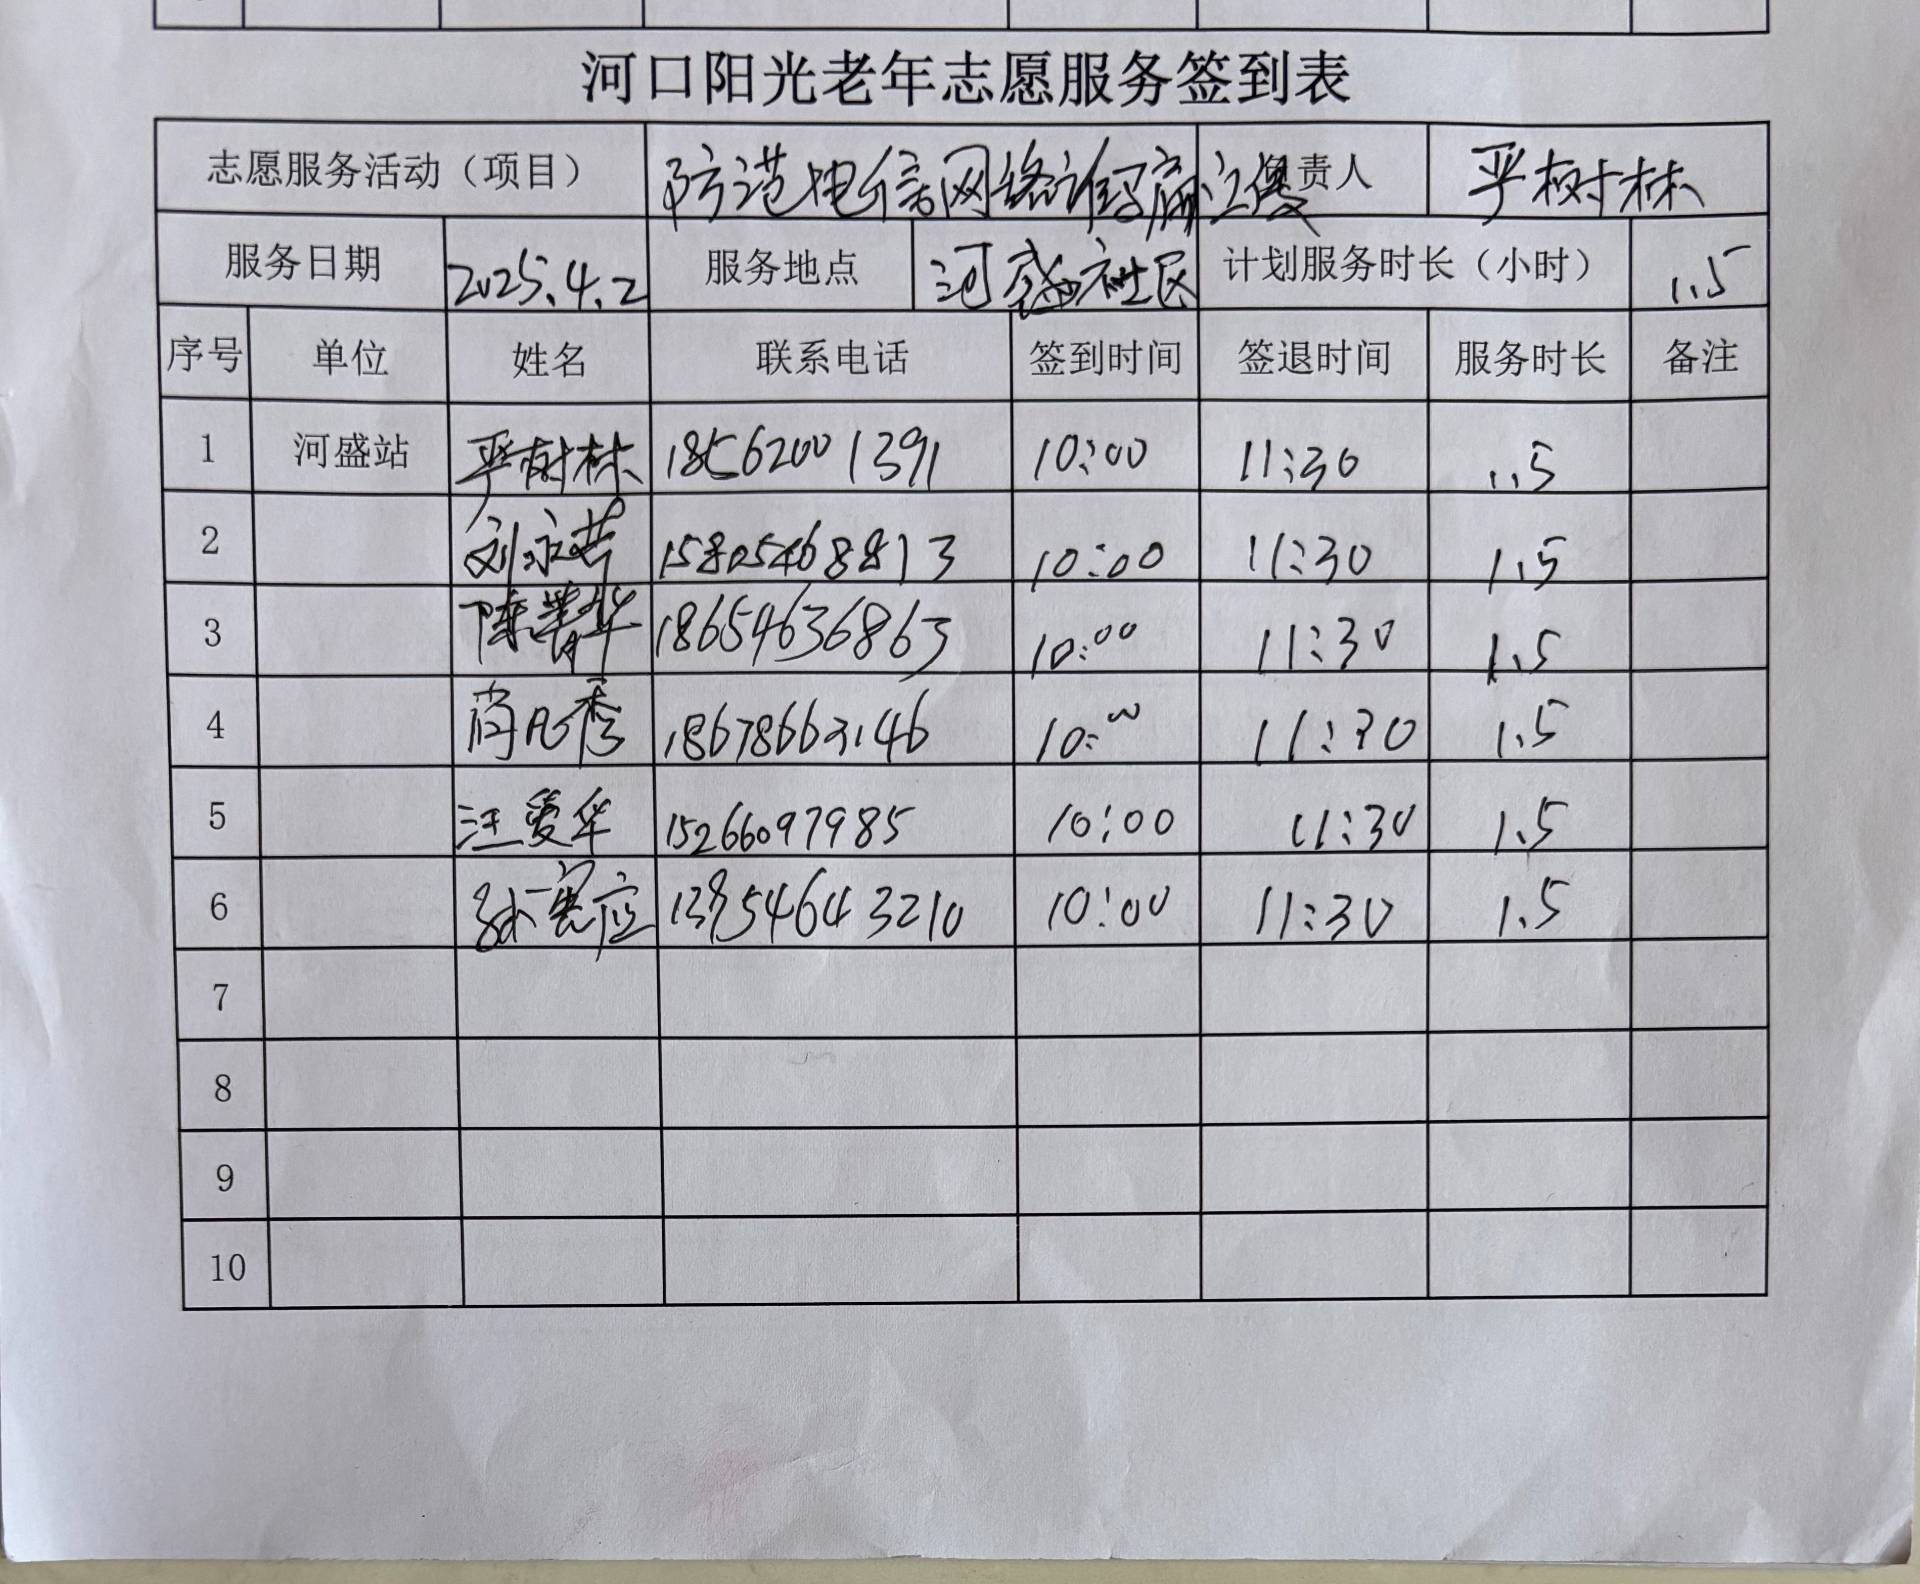 河口阳光老年志愿服务签到表
志愿服务活动（项目） 防范电信网络诈骗 责人 严树林
服务日期 2025.4.2 服务地点 河盛社区 计划服务时长（小时） 1.5
序号 单位 姓名 联系电话 签到时间 签退时间 服务时长 备注
1 河盛站 严树林 18562001391 10:00 11:30 1.5
2 15805468813 10:00 11:30 1.5
3 18654636863 10:00 11:30 1.5
4 10:00 11:30 1.5
5 汪爱华 15266097985 10:00 11:30 1.5
6 10:00 11:30 1.5
7
8
9
10